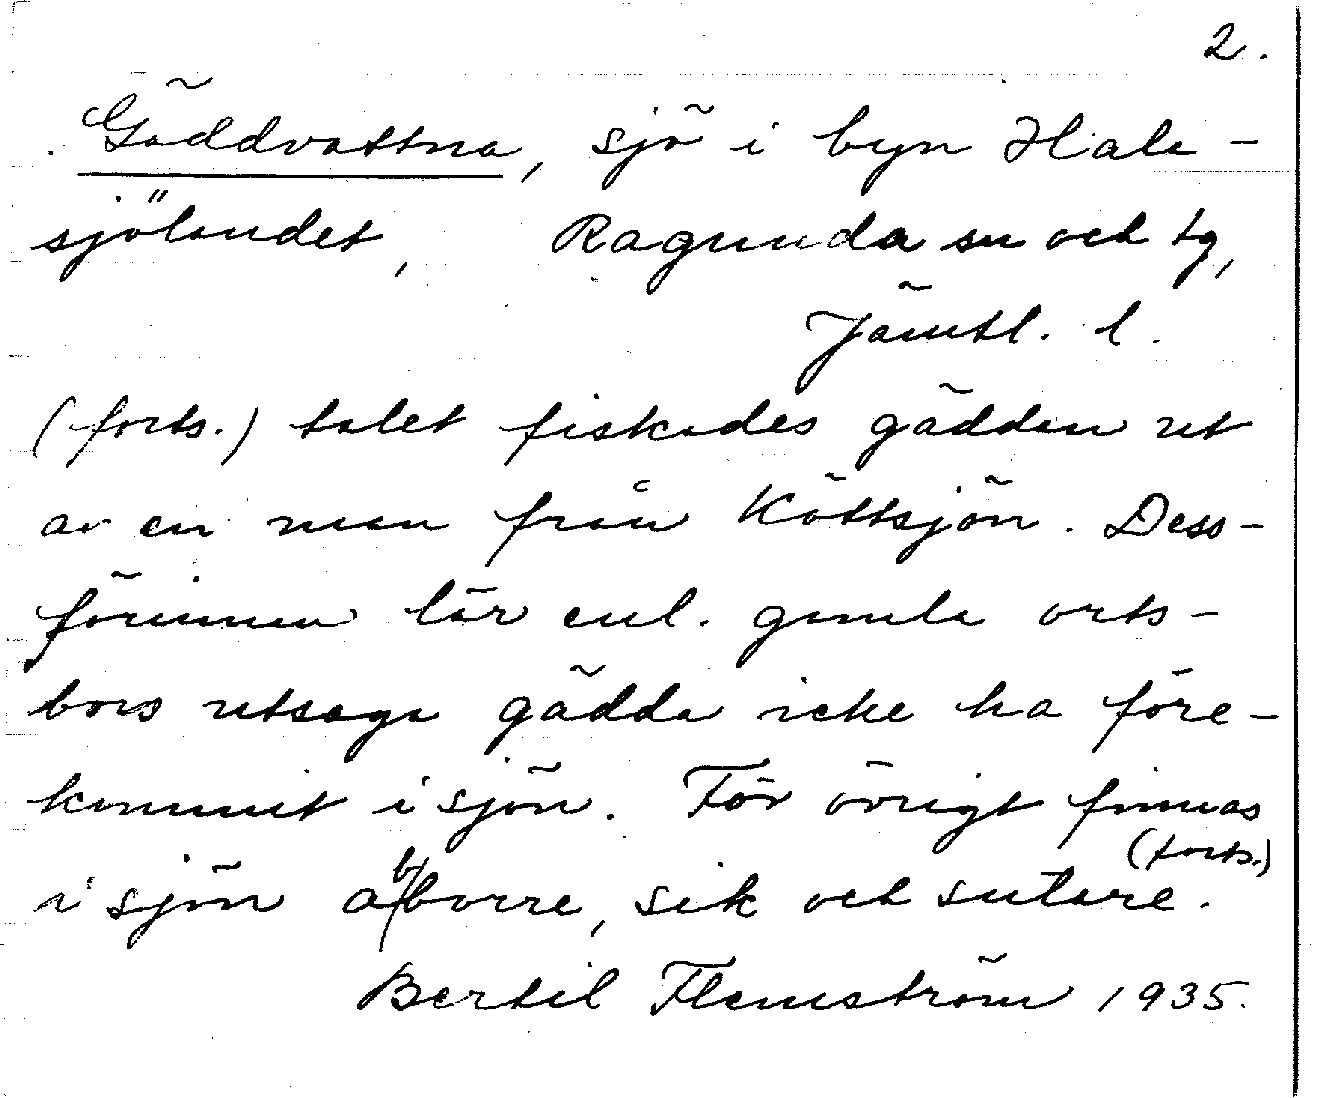 2.
Gäddvattna, sjö i byn Hale-
sjölandet, Ragunda sn och tg,
Jämtl. l.
(forts.) talet fiskades gädden ut
av en man från Köttsjön. Dess-
förinnan lär enl. gamla orts-
bors utsago gädda icke ha före-
kommit i sjön. För övrigt finnas
(forts.)
i sjön abborre, sik och sutare.
Bertil Flemström 1935.